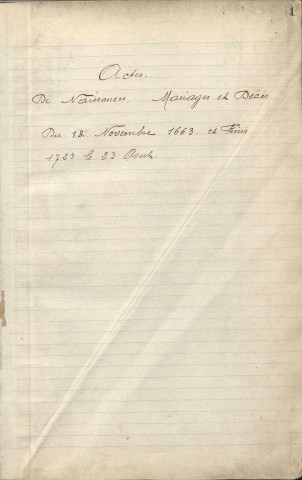 1
Actes.
De Naissances. Mariages et Décès
Du 12. Novembre 1663. et Finis
1723 le 23 Aout.